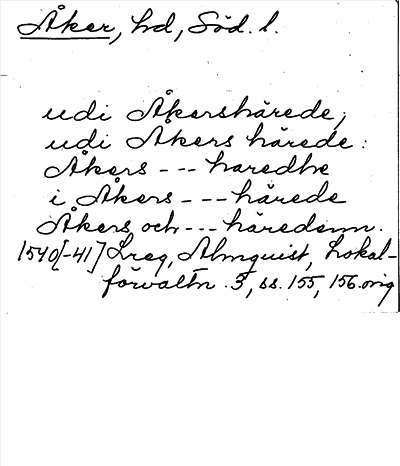 Åker, hd, Söd. l.
udi Åkershärede,
udi Akers härede:
Åkers --- haredhe
i Åkers --- härede
Åkers och --- häredenn.
1540[-41] Lreg, Almquist, Lokal-
förvaltn. 3, ss. 155, 156. orig